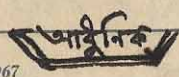 আধুনিক
67